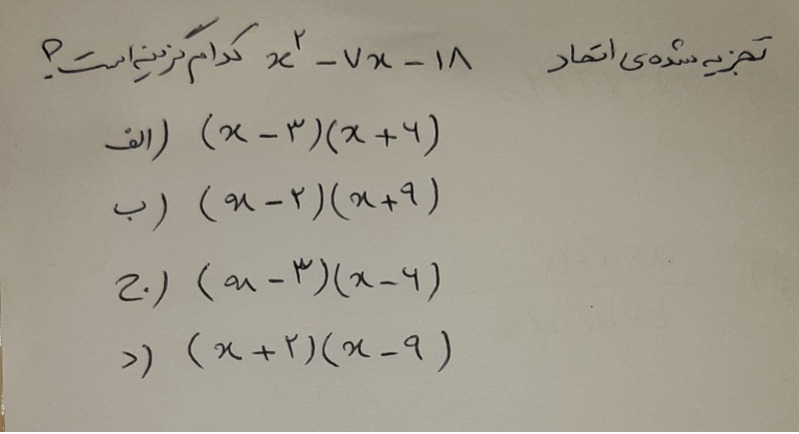 تجزیه شده‌ی اتحاد x² - ۷x - ۱۸ کدام گزینه است؟
الف) (x - ۳)(x + ۶)
ب) (x - ۲)(x + ۹)
ج) (x - ۳)(x - ۶)
د) (x + ۲)(x - ۹)